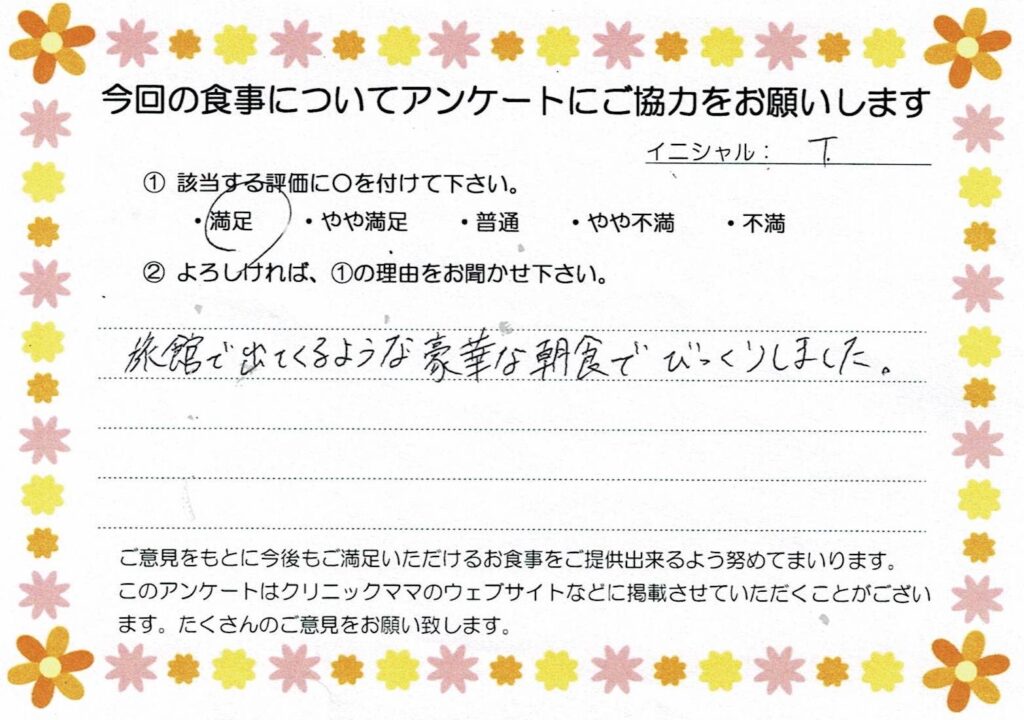 今回の食事についてアンケートにご協力をお願いします
イニシャル: T.
① 該当する評価に〇を付けて下さい。
・満足 ・やや満足 ・普通 ・やや不満 ・不満
② よろしければ、①の理由をお聞かせ下さい。
旅館で出てくるような豪華な朝食でびっくりしました。
ご意見をもとに今後もご満足いただけるお食事をご提供出来るよう努めてまいります。
このアンケートはクリニックママのウェブサイトなどに掲載させていただくことがござい
ます。たくさんのご意見をお願い致します。